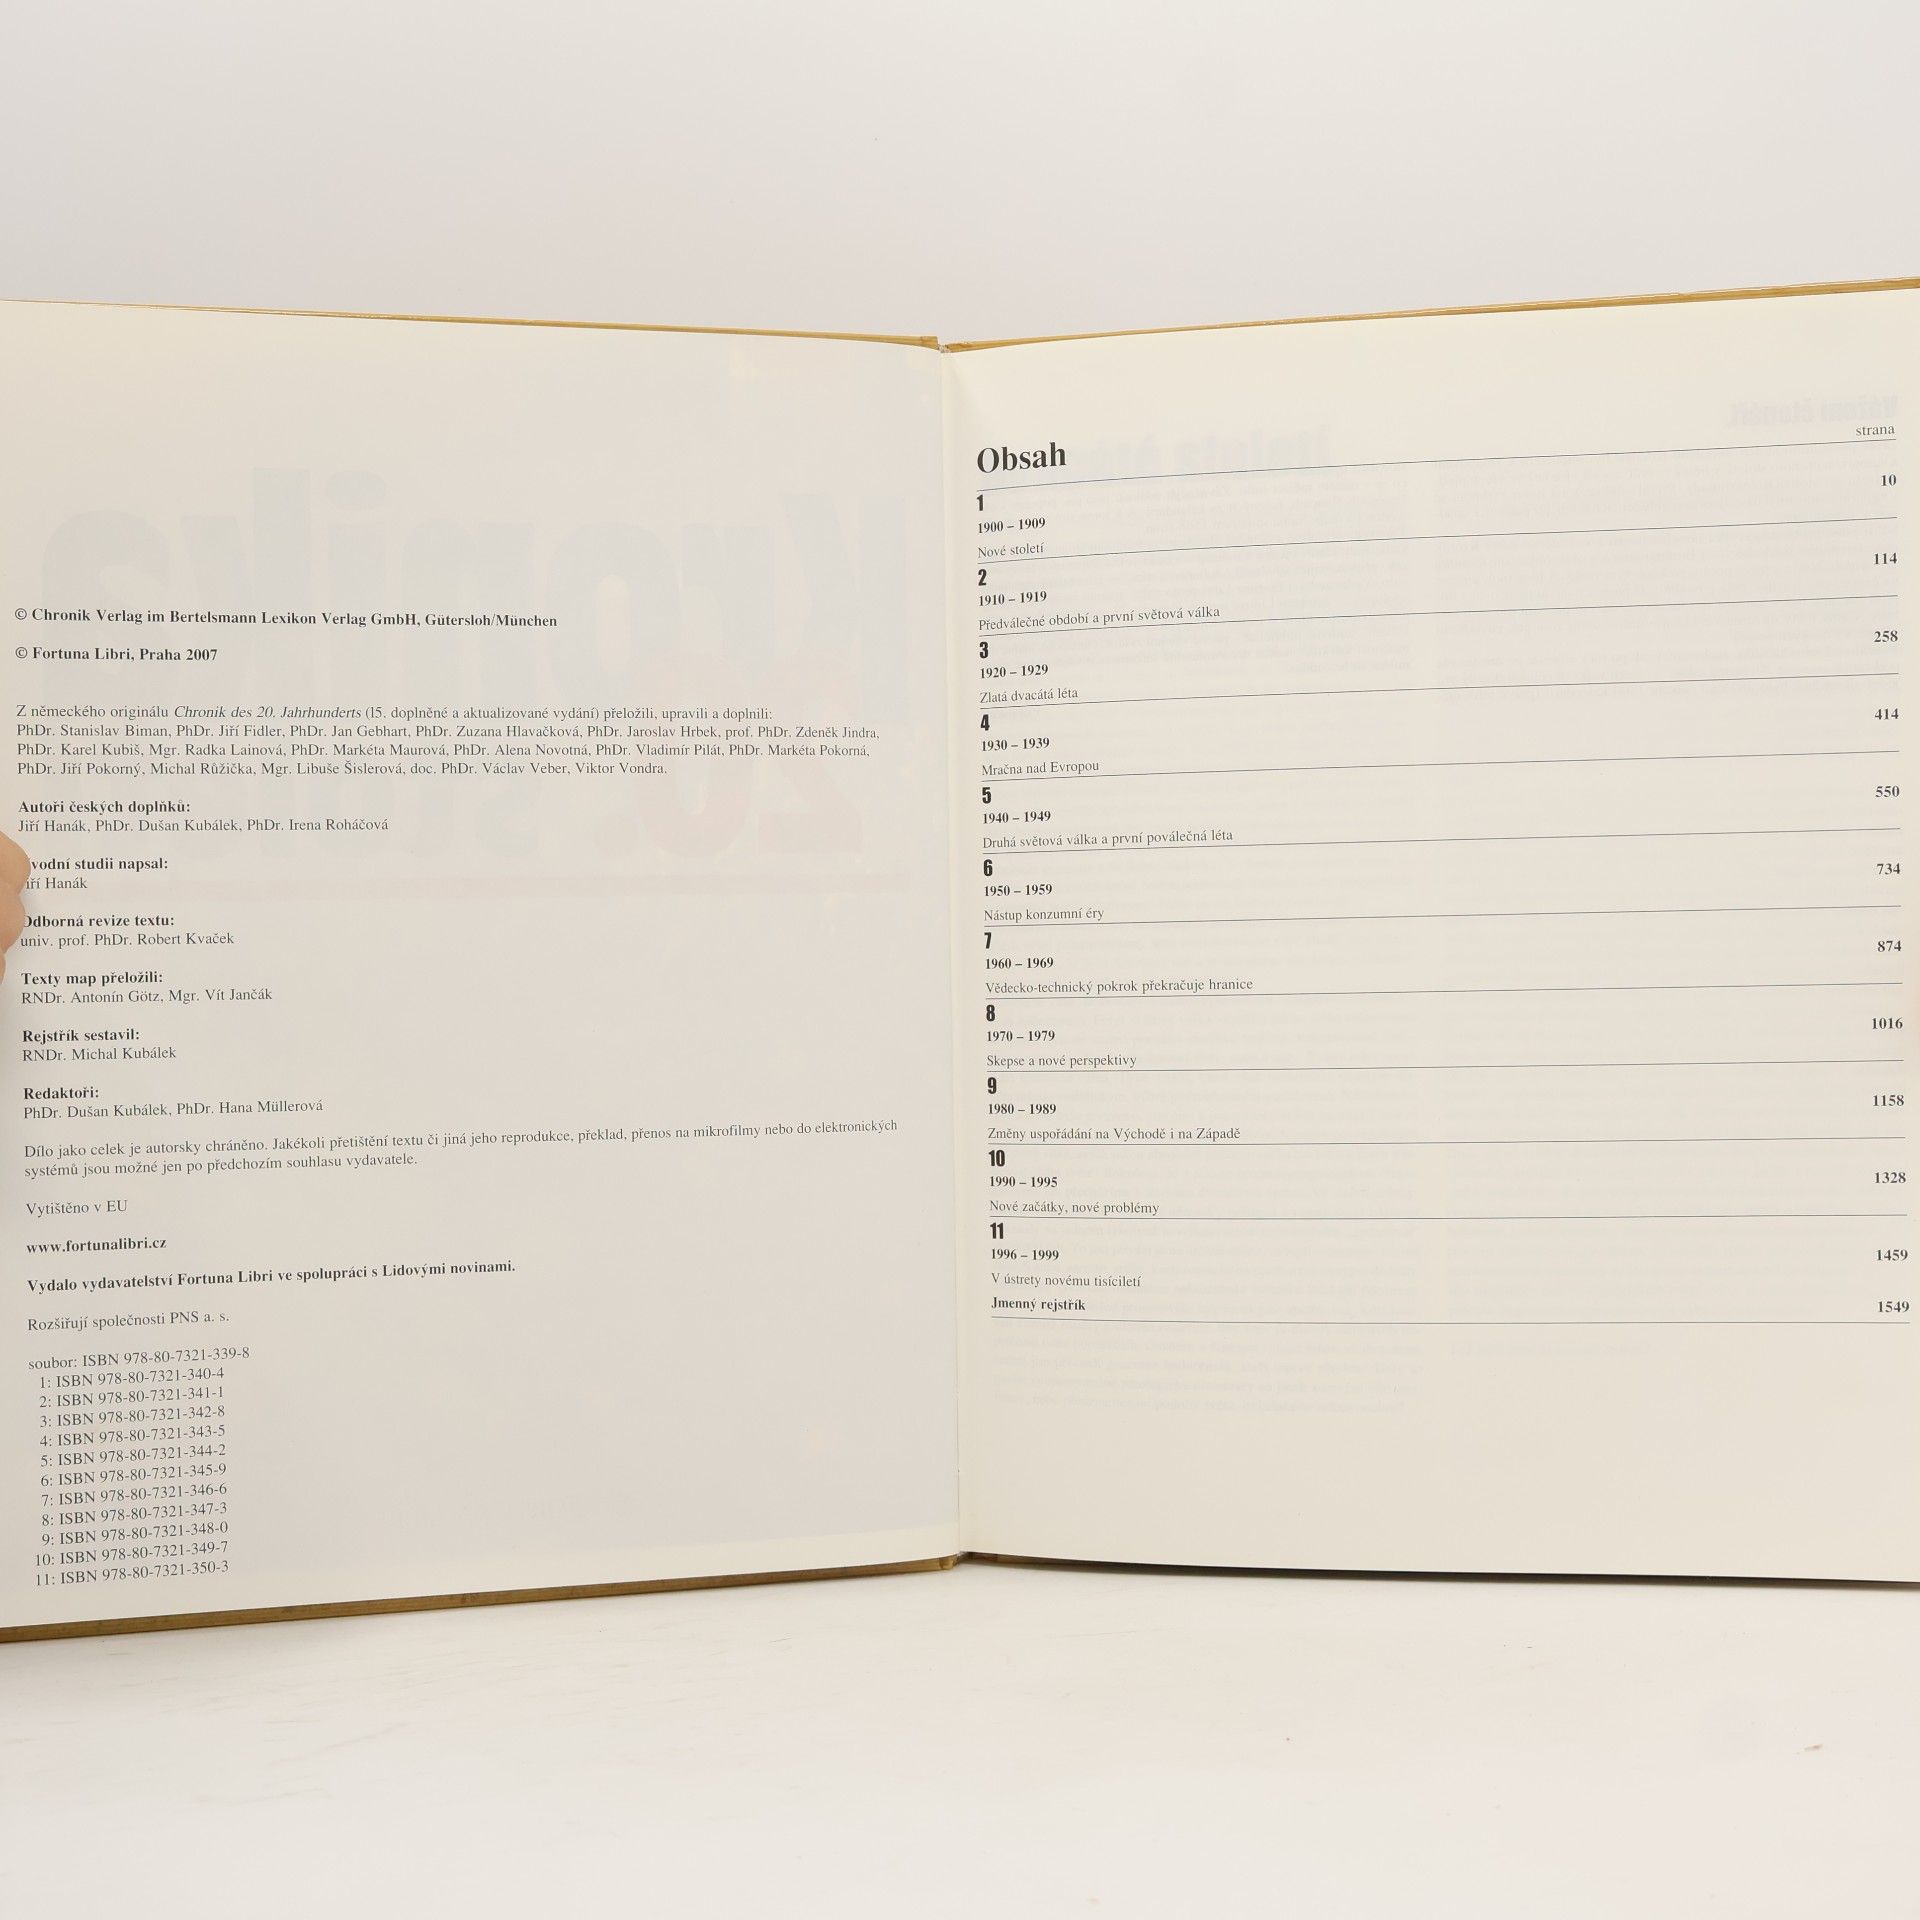 © Chronik Verlag im Bertelsmann Lexikon Verlag GmbH, Gütersloh/München
© Fortuna Libri, Praha 2007
Z německého originálu Chronik des 20. Jahrhunderts (15. doplněné a aktualizované vydání) přeložili, upravili a doplnili:
PhDr. Stanislav Biman, PhDr. Jiří Fidler, PhDr. Jan Gebhart, PhDr. Zuzana Hlavačková, PhDr. Jaroslav Hrbek, prof. PhDr. Zdeněk Jindra,
PhDr. Karel Kubiš, Mgr. Radka Lainová, PhDr. Markéta Maurová, PhDr. Alena Novotná, PhDr. Vladimír Pilát, PhDr. Markéta Pokorná,
PhDr. Jiří Pokorný, Michal Růžička, Mgr. Libuše Šislerová, doc. PhDr. Václav Veber, Viktor Vondra.
Autoři českých doplňků:
Jiří Hanák, PhDr. Dušan Kubálek, PhDr. Irena Roháčová
vodní studii napsal:
iří Hanák
Odborná revize textu:
univ. prof. PhDr. Robert Kvaček
Texty map přeložili:
RNDr. Antonín Götz, Mgr. Vít Jančák
Rejstřík sestavil:
RNDr. Michal Kubálek
Redaktoři:
PhDr. Dušan Kubálek, PhDr. Hana Müllerová
Dílo jako celek je autorsky chráněno. Jakékoli přetištění textu či jiná jeho reprodukce, překlad, přenos na mikrofilmy nebo do elektronických
systémů jsou možné jen po předchozím souhlasu vydavatele.
Vytištěno v EU
www.fortunalibri.cz
Vydalo vydavatelství Fortuna Libri ve spolupráci s Lidovými novinami.
Rozšiřují společnosti PNS a. s.
soubor: ISBN 978-80-7321-339-8
1: ISBN 978-80-7321-340-4
2: ISBN 978-80-7321-341-1
3: ISBN 978-80-7321-342-8
4: ISBN 978-80-7321-343-5
5: ISBN 978-80-7321-344-2
6: ISBN 978-80-7321-345-9
7: ISBN 978-80-7321-346-6
8: ISBN 978-80-7321-347-3
9: ISBN 978-80-7321-348-0
10: ISBN 978-80-7321-349-7
11: ISBN 978-80-7321-350-3
Obsah strana
1 10
1900 – 1909
Nové století
2 114
1910 – 1919
Předválečné období a první světová válka
3 258
1920 – 1929
Zlatá dvacátá léta
4 414
1930 – 1939
Mračna nad Evropou
5 550
1940 – 1949
Druhá světová válka a první poválečná léta
6 734
1950 – 1959
Nástup konzumní éry
7 874
1960 – 1969
Vědecko-technický pokrok překračuje hranice
8 1016
1970 – 1979
Skepse a nové perspektivy
9 1158
1980 – 1989
Změny uspořádání na Východě i na Západě
10 1328
1990 – 1995
Nové začátky, nové problémy
11 1459
1996 – 1999
V ústrety novému tisíciletí
Jmenný rejstřík 1549